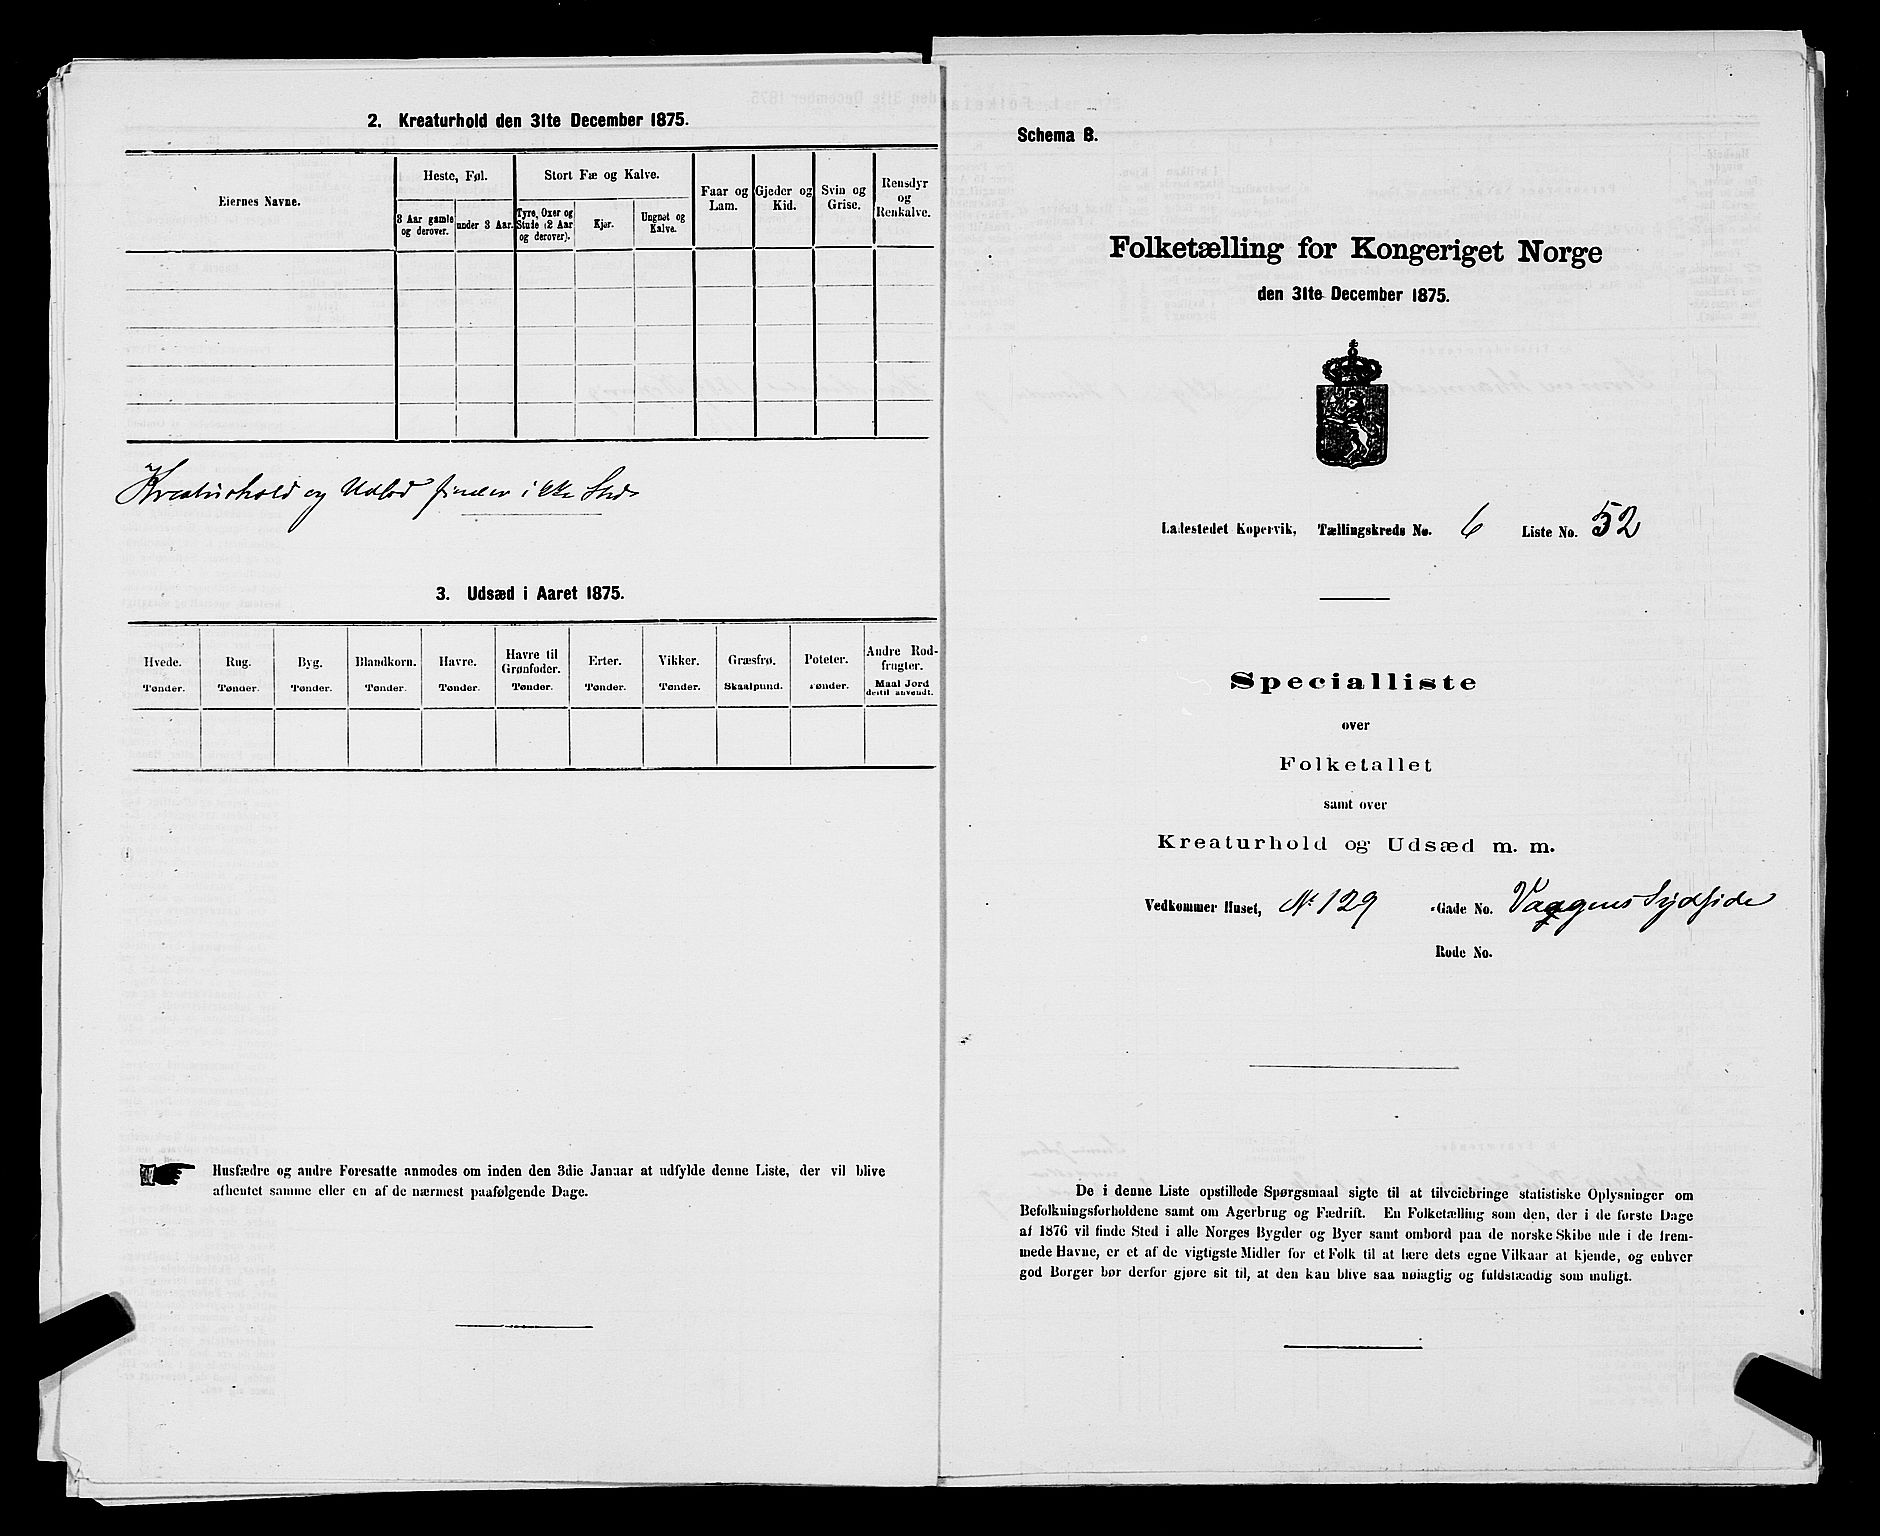 2. Kreaturhold den 31te December 1875.
Eiernes Navne.
Heste, Føl.
3 Aar gamle og derover.
under 3 Aar.
Stort Fæ og Kalve.
Tyre, Oxer og Stude (2 Aar og derover).
Kjør.
Ungnøt og Kalve.
Faar og Lam.
Gjeder og Kid.
Svin og Grise.
Rensdyr og Renkalve.
Kreaturhold og Udsæd finder ikke Sted
3. Udsæd i Aaret 1875.
Hvede. Rug. Byg. Blandkorn. Havre. Havre til Grønfoder. Erter. Vikker. Græsfrø. Poteter. Andre Rodfrugter.
Tønder. Tønder. Tønder. Tønder. Tønder. Tønder. Tønder. Tønder. Skaalpund. Tønder. Maal Jord dertil anvendt.
Husfædre og andre Foresatte anmodes om inden den 3die Januar at udfylde denne Liste, der vil blive
afhentet samme eller en af de nærmest paafølgende Dage.
Schema B.
Folketælling for Kongeriget Norge
den 31te December 1875.
Ladestedet Kopervik, Tællingskreds No. 6 Liste No. 52
Specialliste
over
Folketallet
samt over
Kreaturhold og Udsæd m. m.
Vedkommer Huset, No 129 -Gade No. Vaagens Sydside
Rode No.
De i denne Liste opstillede Spørgsmaal sigte til at tilveiebringe statistiske Oplysninger om
Befolkningsforholdene samt om Agerbrug og Fædrift. En Folketælling som den, der i de første Dage
af 1876 vil finde Sted i alle Norges Bygder og Byer samt ombord paa de norske Skibe ude i de frem-
mede Havne, er et af de vigtigste Midler for et Folk til at lære dets egne Vilkaar at kjende, og enhver
god Borger bør derfor gjøre sit til, at den kan blive saa nøiagtig og fuldstændig som muligt.